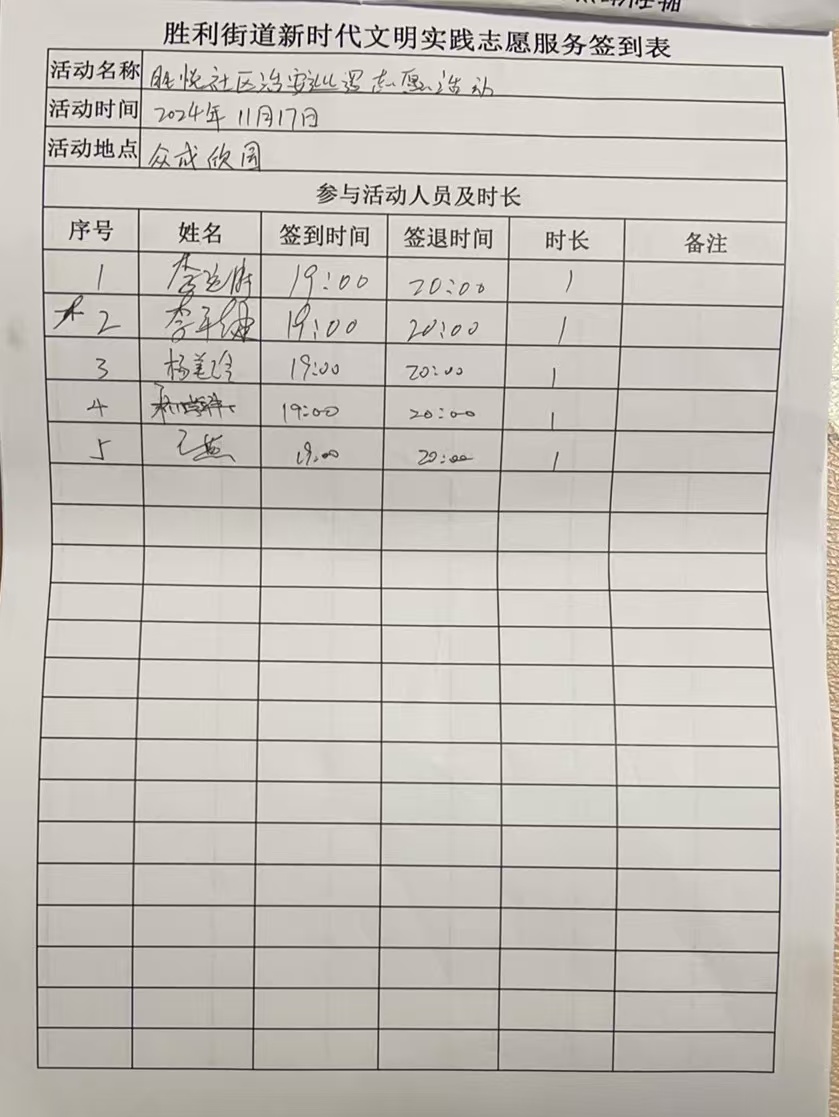 胜利街道新时代文明实践志愿服务签到表
活动名称 胜悦社区治安巡逻志愿活动
活动时间 2024年11月17日
活动地点 众成欣园
参与活动人员及时长
序号 姓名 签到时间 签退时间 时长 备注
1 19:00 20:00 1
2 19:00 20:00 1
3 杨美玲 19:00 20:00 1
4 19:00 20:00 1
5 王燕 19:00 20:00 1